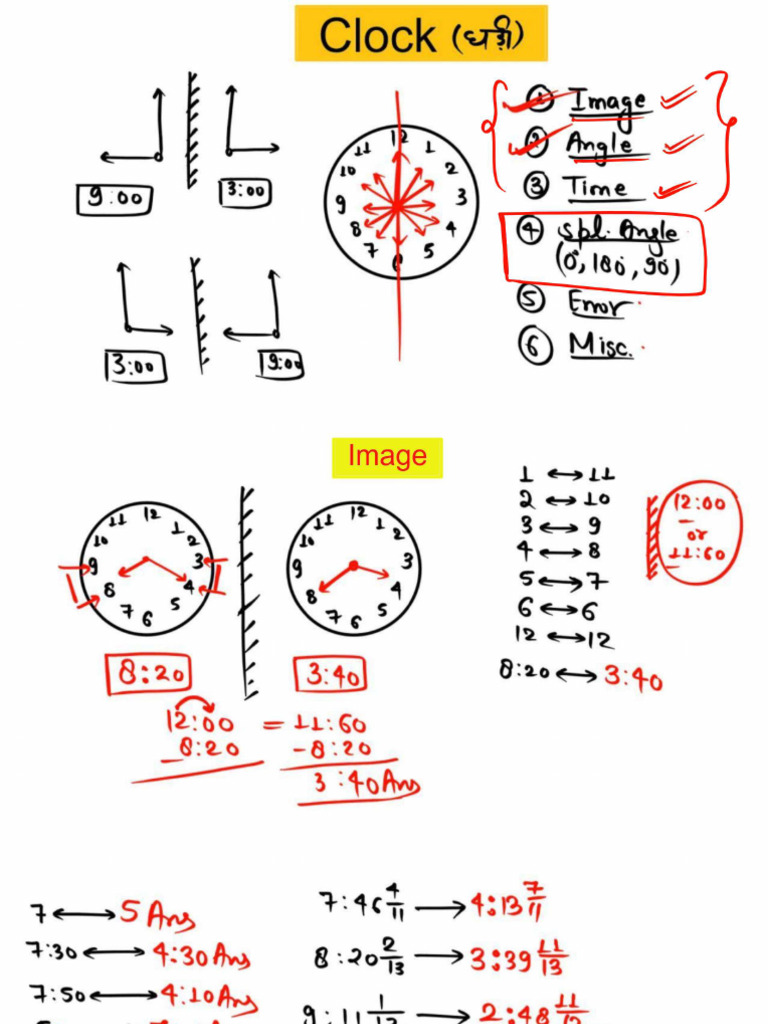 Clock (घड़ी)
① Image
② Angle
③ Time
④ Spl. Angle
(0°, 180°, 90°)
⑤ Error
⑥ Misc.
9:00
3:00
3:00
9:00
12
1
2
3
4
5
6
7
8
9
10
11
Image
12
1
2
3
4
5
6
7
8
9
10
11
8:20
12
1
2
3
4
5
6
7
8
9
10
11
3:40
1 ↔ 11
2 ↔ 10
3 ↔ 9
4 ↔ 8
5 ↔ 7
6 ↔ 6
12 ↔ 12
8:20 ↔ 3:40
12:00
or
11:60
12:00 = 11:60
-8:20 -8:20
3:40 Ans
7 ↔ 5 Ans
7:30 ↔ 4:30 Ans
7:50 ↔ 4:10 Ans
7:46 4/11 → 4:13 7/11
8:20 2/13 → 3:39 11/13